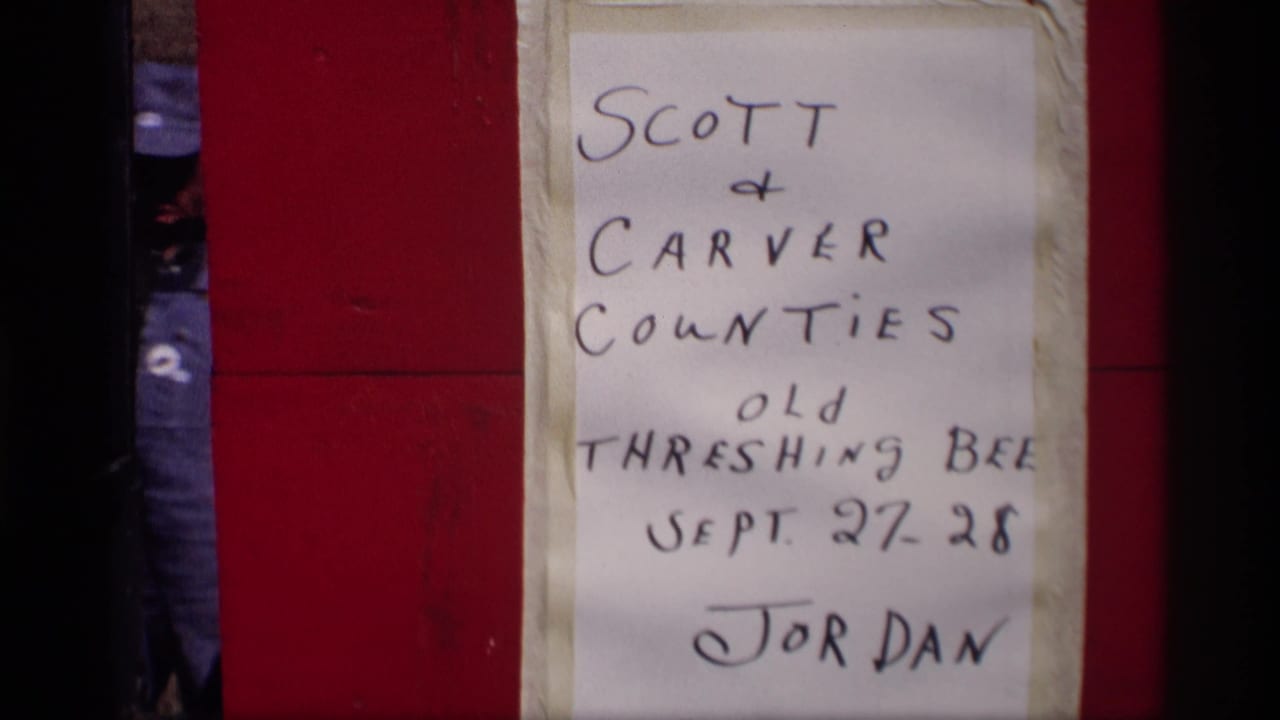 SCOTT
&
CARVER
COUNTiES
OLd
THRESHiNg BEE
SEPT. 27-28
JORDAN